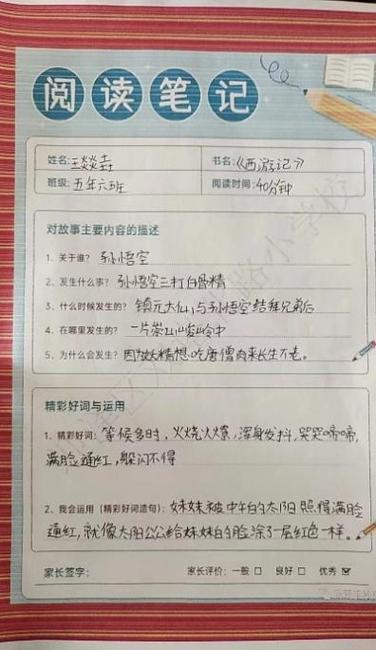 阅读笔记
姓名:王燚垚 书名:《西游记》
班级:五年六班 阅读时间:40分钟
对故事主要内容的描述
1、关于谁? 孙悟空
2、发生什么事? 孙悟空三打白骨精
3、什么时候发生的? 镇元大仙与孙悟空结拜兄弟后
4、在哪里发生的? 一片崇山峻岭中
5、为什么会发生? 因为妖精想吃唐僧肉来长生不老。
精彩好词与运用
1、精彩好词: 等候多时,火烧火燎,浑身发抖,哭哭啼啼,
满脸通红,躲闪不得
2、我会运用(精彩好词造句): 妹妹被中午的太阳照得满脸
通红,就像太阳公公给妹妹的脸涂了一层红色一样。
家长签字: 家长评价:一般 良好 优秀